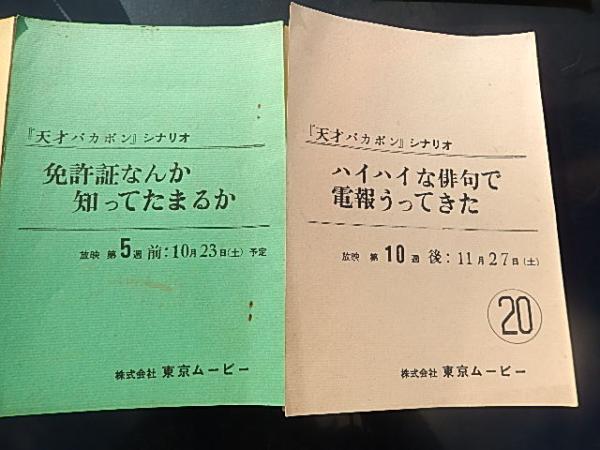 『天才バカボン』シナリオ
免許証なんか
知ってたまるか
放映 第5週 前:10月23日(土) 予定
株式会社 東京ムービー
『天才バカボン』シナリオ
ハイハイな俳句で
電報うってきた
放映 第10週 後:11月27日(土)
20
株式会社 東京ムービー